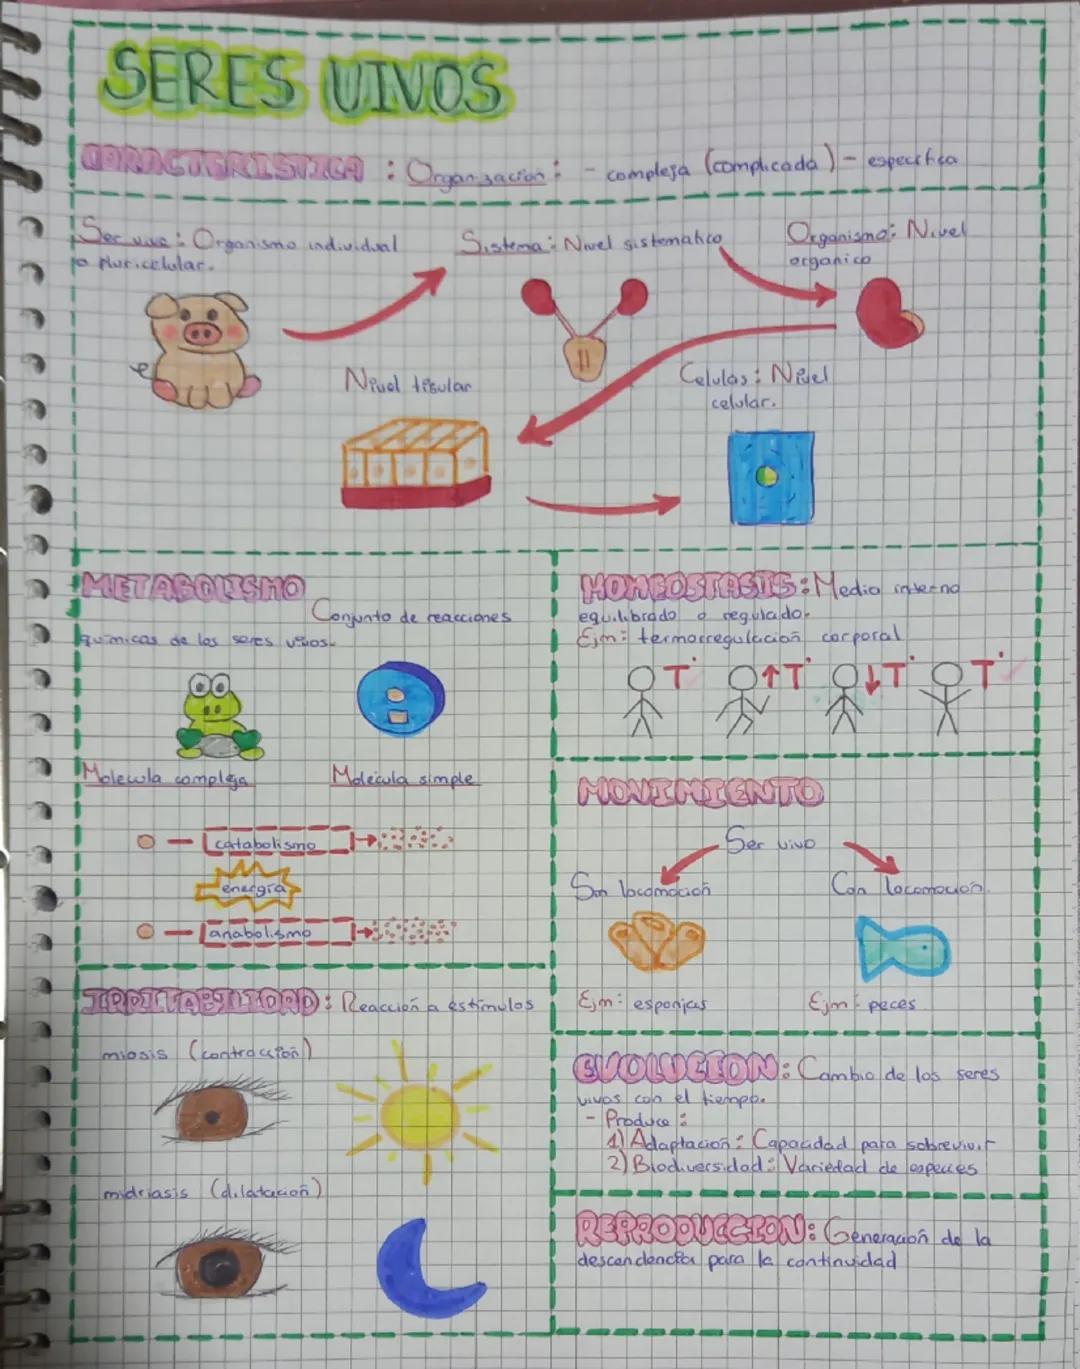 SERES VIVOS
CARACTERISTICA : Organización : - compleja (complicada) - especifica
Ser vivo : Organismo individual
o pluricelular.
Sistema : Nivel sistematico
Organismo : Nivel
organico
Nivel tisular
Celulas : Nivel
celular.
METABOLISMO
Conjunto de reacciones
quimicas de los seres vivos.
Molecula compleja
Molécula simple
catabolismo
energía
anabolismo
HOMEOSTASIS : Medio interno
equilibrado o regulado.
Ejm : termorregulación corporal
T° ↑T° ↓T° T°
MOVIMIENTO
Ser vivo
Sin locomoción
Con locomoción.
Ejm : esponjas
Ejm : peces
IRRITABILIDAD : Reacción a estímulos
miosis (contracción)
midriasis (dilatación)
EVOLUCION : Cambio de los seres
vivos con el tiempo.
- Produce :
1) Adaptación : Capacidad para sobrevivir
2) Biodiversidad : Variedad de especies
REPRODUCCION : Generación de la
descendencia para la continuidad